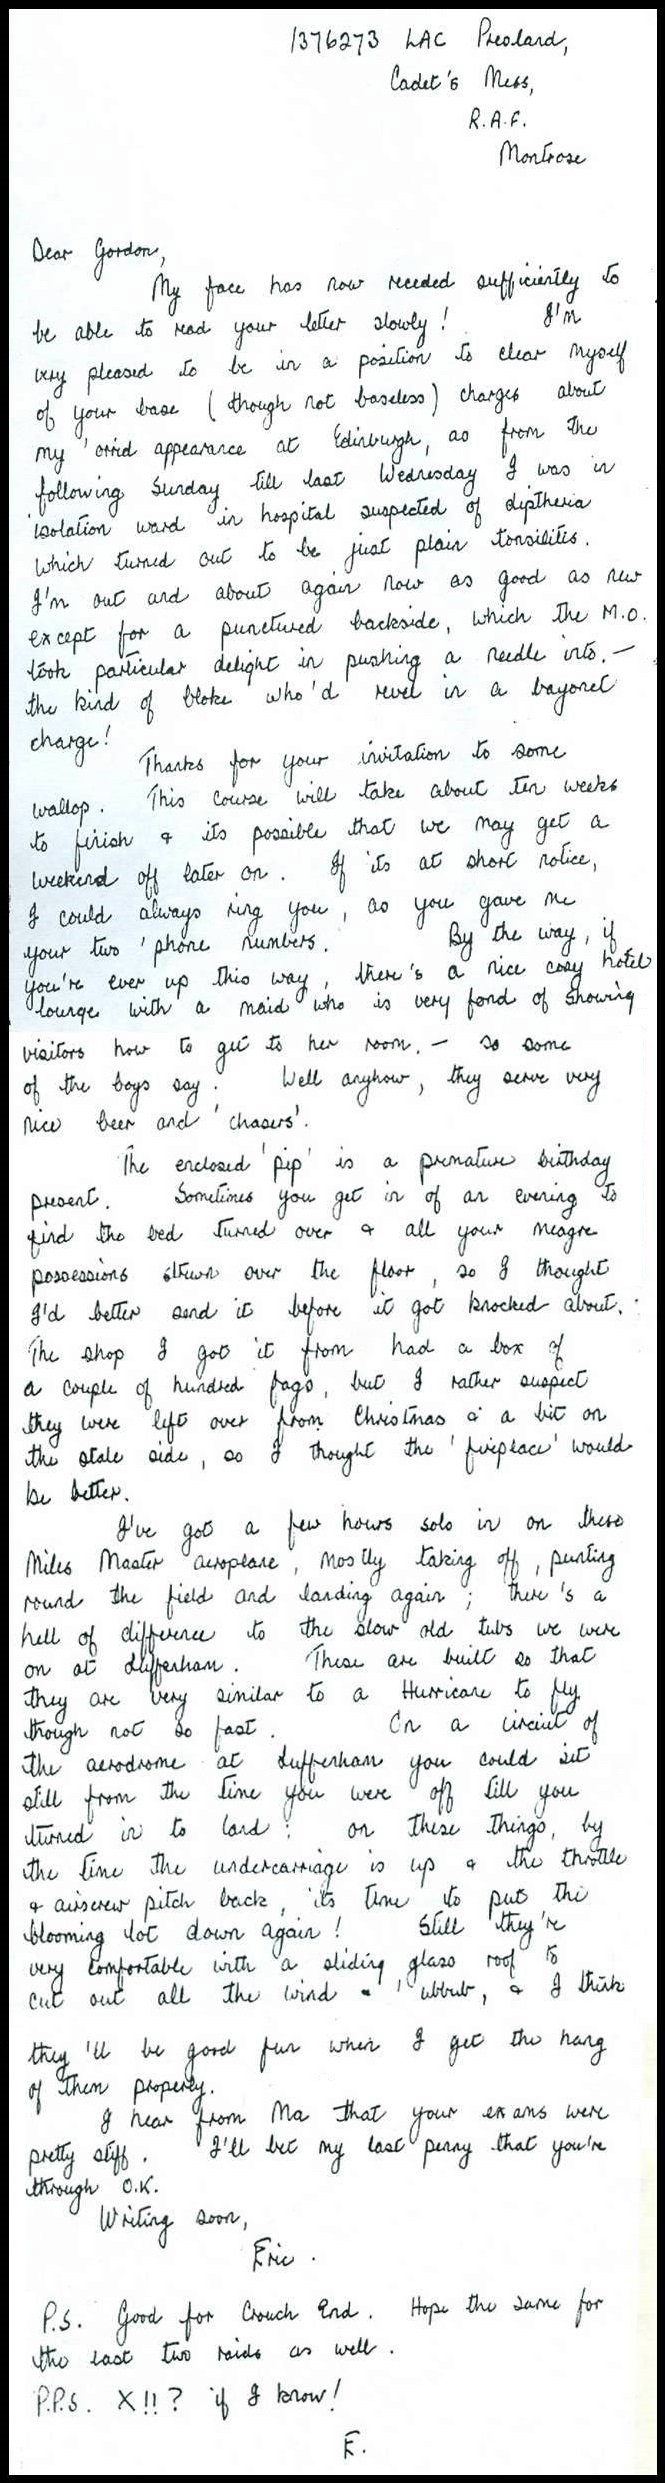 1376273 LAC Preoland,
Cadet's Mess,
R.A.F.
Montrose
Dear Gordon,
My face has now receded sufficiently to
be able to read your letter slowly! I'm
very pleased to be in a position to clear myself
of your base (though not baseless) charges about
my 'orrid appearance at Edinburgh, as from the
following Sunday till last Wednesday I was in
isolation ward in hospital suspected of diptheria
which turned out to be just plain tonsilitis.
I'm out and about again now as good as new
except for a punctured backside, which the M.O.
took particular delight in pushing a needle into. —
the kind of bloke who'd revel in a bayonet
charge!
Thanks for your invitation to some
wallop. This course will take about ten weeks
to finish & its possible that we may get a
weekend off later on. If its at short notice,
I could always ring you, as you gave me
your two 'phone numbers. By the way, if
you're ever up this way, there's a nice cosy hotel
lounge with a maid who is very fond of showing
visitors how to get to her room. — so some
of the boys say. Well anyhow, they serve very
nice beer and 'chasers'.
The enclosed 'pip' is a premature birthday
present. Sometimes you get in of an evening to
find the bed turned over & all your meagre
possessions strewn over the floor, so I thought
I'd better send it before it got knocked about.
The shop I got it from had a box of
a couple of hundred fags, but I rather suspect
they were left over from Christmas & a bit on
the stale side, so I thought the 'fireplace' would
be better.
I've got a few hours solo in on these
Miles Master aeroplane, mostly taking off, punting
round the field and landing again; there's a
hell of difference to the slow old tubs we were
on at Sufferham. These are built so that
they are very similar to a Hurricane to fly
though not so fast. On a circuit of
the aerodrome at Sufferham you could sit
still from the time you were off till you
turned in to land: on these things, by
the time the undercarriage is up & the throttle
& airscrew pitch back, its time to put the
blooming lot down again! Still they're
very comfortable with a sliding glass roof to
cut out all the wind & 'ubbub, & I think
they'll be good fun when I get the hang
of them properly.
I hear from Ma that your exams were
pretty stiff. I'll bet my last penny that you're
through O.K.
Writing soon,
Eric.
P.S. Good for Crouch End. Hope the same for
the last two raids as well.
P.P.S. X!!? if I know!
E.